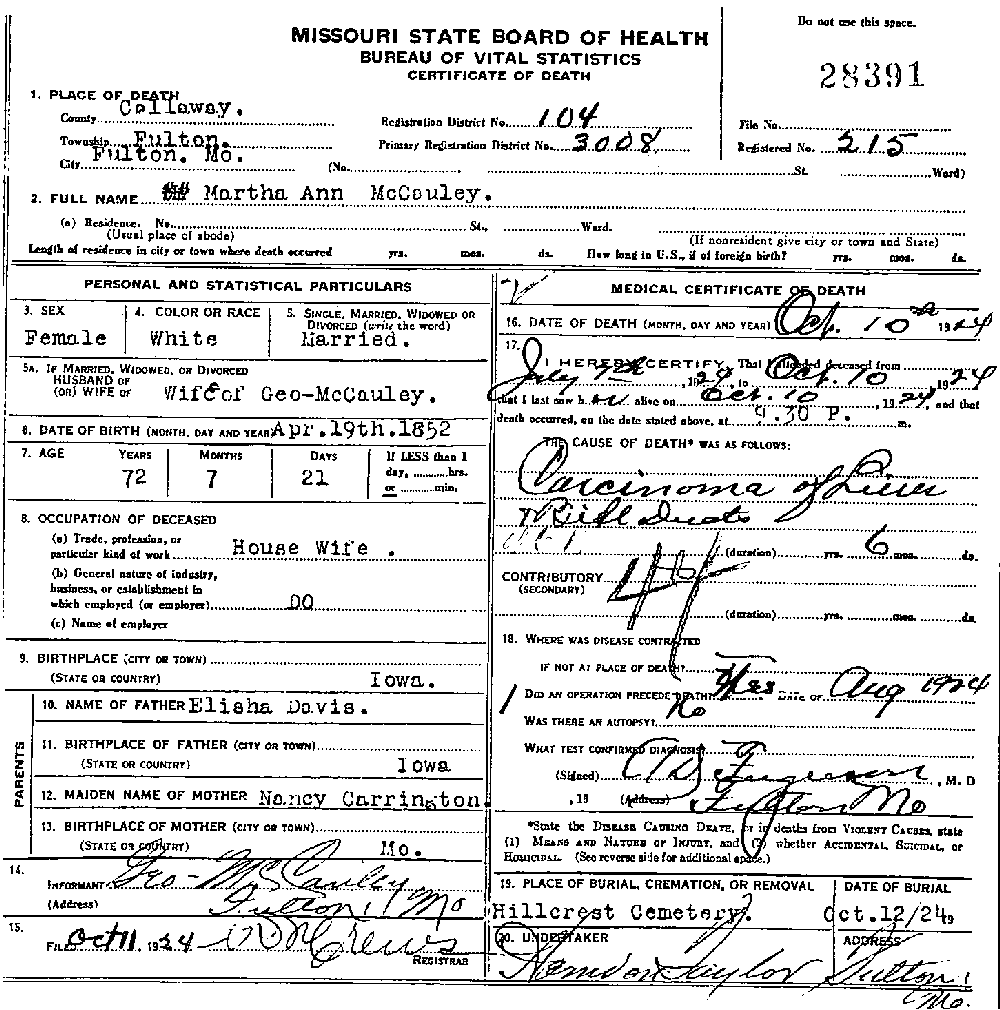 Do not use this space.
MISSOURI STATE BOARD OF HEALTH
BUREAU OF VITAL STATISTICS
CERTIFICATE OF DEATH
28391
1. PLACE OF DEATH
County Callaway. Registration District No. 104 File No.
Township Fulton. Primary Registration District No. 3008 Registered No. 215
City Fulton. Mo. (No. St. Ward)
2. FULL NAME Martha Ann McCauley.
(a) Residence. No. St., Ward.
(Usual place of abode) (If nonresident give city or town and State)
Length of residence in city or town where death occurred yrs. mos. ds. How long in U.S., if of foreign birth? yrs. mos. ds.
PERSONAL AND STATISTICAL PARTICULARS
3. SEX 4. COLOR OR RACE 5. SINGLE, MARRIED, WIDOWED OR
DIVORCED (write the word)
Female White Married.
5A. IF MARRIED, WIDOWED, OR DIVORCED
HUSBAND OF
(OR) WIFE OF Wife of Geo-McCauley.
6. DATE OF BIRTH (MONTH, DAY AND YEAR) Apr. 19th. 1852
7. AGE YEARS MONTHS DAYS If LESS than 1
day, ........hrs.
72 7 21 or ........min.
8. OCCUPATION OF DECEASED
(a) Trade, profession, or
particular kind of work House Wife .
(b) General nature of industry,
business, or establishment in
which employed (or employer) DO
(c) Name of employer
9. BIRTHPLACE (CITY OR TOWN)
(STATE OR COUNTRY) Iowa.
PARENTS
10. NAME OF FATHER Elisha Davis.
11. BIRTHPLACE OF FATHER (CITY OR TOWN)
(STATE OR COUNTRY) Iowa
12. MAIDEN NAME OF MOTHER Nancy Carrington.
13. BIRTHPLACE OF MOTHER (CITY OR TOWN)
(STATE OR COUNTRY) Mo.
14.
INFORMANT Geo- McCauley
(Address) Fulton, Mo
15.
FILED Oct 11, 1924 Crews
REGISTRAR
MEDICAL CERTIFICATE OF DEATH
16. DATE OF DEATH (MONTH, DAY AND YEAR) Oct. 10th 1924
17.
I HEREBY CERTIFY, That I attended deceased from
July 7th, 1924, to Oct. 10, 1924
that I last saw her alive on Oct. 10, 1924, and that
death occurred, on the date stated above, at 9.30 P. m.
THE CAUSE OF DEATH* WAS AS FOLLOWS:
Carcinoma of Liver
& Bile Ducts
(duration) yrs. 6 mos. ds.
CONTRIBUTORY
(SECONDARY)
(duration) yrs. mos. ds.
18. WHERE WAS DISEASE CONTRACTED
IF NOT AT PLACE OF DEATH?
DID AN OPERATION PRECEDE DEATH? Yes DATE OF Aug 1924
WAS THERE AN AUTOPSY? No
WHAT TEST CONFIRMED DIAGNOSIS?
(Signed) Ferguson, M. D
, 19 (Address) Fulton Mo
*State the DISEASE CAUSING DEATH, or in deaths from VIOLENT CAUSES, state
(1) MEANS AND NATURE OF INJURY, and (2) whether ACCIDENTAL, SUICIDAL, or
HOMICIDAL. (See reverse side for additional space.)
19. PLACE OF BURIAL, CREMATION, OR REMOVAL DATE OF BURIAL
Hillcrest Cemetery. Oct.12/24 19
20. UNDERTAKER ADDRESS
Taylor Fulton,
Mo.